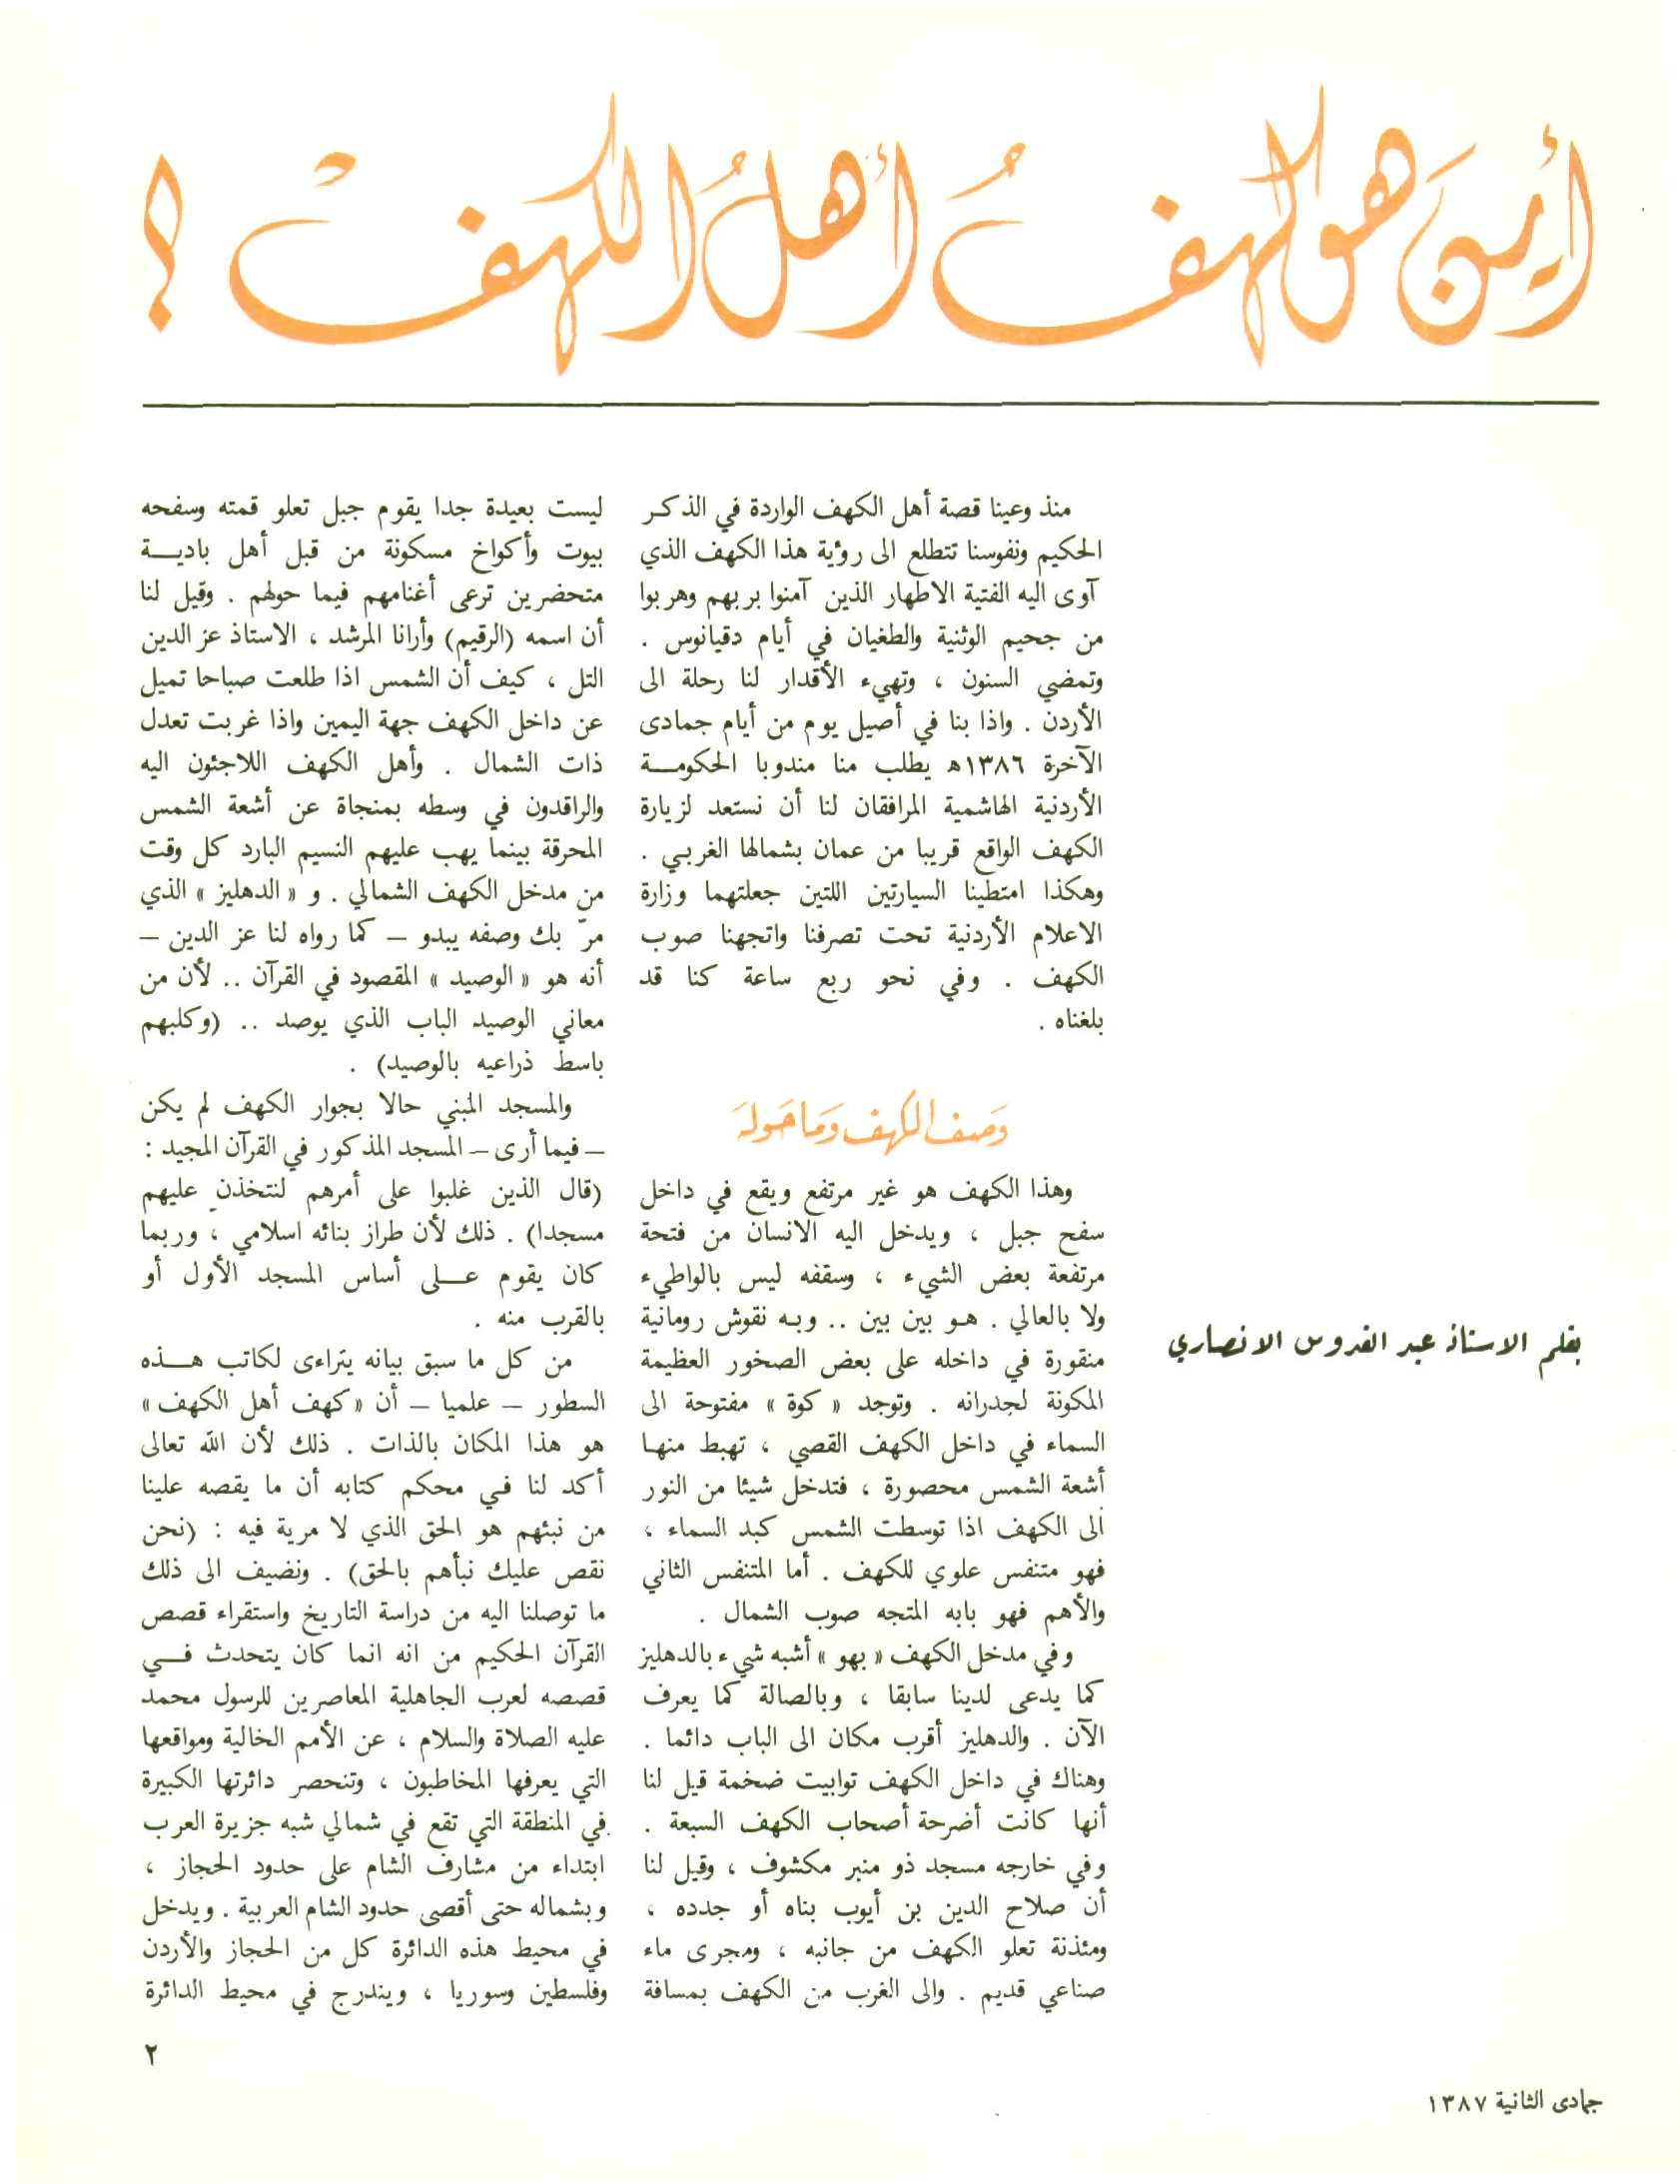 أين هو كهف أهل الكهف ؟
بقلم الاستاذ عبد القدوس الانصاري
منذ وعينا قصة أهل الكهف الواردة في الذكر
الحكيم ونفوسنا تتطلع الى رؤية هذا الكهف الذي
آوى اليه الفتية الاطهار الذين آمنوا بربهم وهربوا
من جحيم الوثنية والطغيان في أيام دقيانوس .
وتمضي السنون ، وتهيء الأقدار لنا رحلة الى
الأردن . واذا بنا في أصيل يوم من أيام جمادى
الآخرة ١٣٨٦ه يطلب منا مندوبا الحكومة
الأردنية الهاشمية المرافقان لنا أن نستعد لزيارة
الكهف الواقع قريبا من عمان بشمالها الغربي .
وهكذا امتطينا السيارتين اللتين جعلتهما وزارة
الاعلام الأردنية تحت تصرفنا واتجهنا صوب
الكهف . وفي نحو ربع ساعة كنا قد
بلغناه .
وصف الكهف وما حوله
وهذا الكهف هو غير مرتفع ويقع في داخل
سفح جبل ، ويدخل اليه الانسان من فتحة
مرتفعة بعض الشيء ، وسقفه ليس بالواطيء
ولا بالعالي . هو بين بين .. وبه نقوش رومانية
منقورة في داخله على بعض الصخور العظيمة
المكونة لجدرانه . وتوجد « كوة » مفتوحة الى
السماء في داخل الكهف القصي ، تهبط منها
أشعة الشمس محصورة ، فتدخل شيئا من النور
الى الكهف اذا توسطت الشمس كبد السماء ،
فهو متنفس علوي للكهف . أما المتنفس الثاني
والأهم فهو بابه المتجه صوب الشمال .
وفي مدخل الكهف « بهو » أشبه شيء بالدهليز
كما يدعى لدينا سابقا ، وبالصالة كما يعرف
الآن . والدهليز أقرب مكان الى الباب دائما .
وهناك في داخل الكهف توابيت ضخمة قيل لنا
أنها كانت أضرحة أصحاب الكهف السبعة .
وفي خارجه مسجد ذو منبر مكشوف ، وقيل لنا
أن صلاح الدين بن أيوب بناه أو جدده ،
ومئذنة تعلو الكهف من جانبه ، ومجرى ماء
صناعي قديم . والى الغرب من الكهف بمسافة
ليست بعيدة جدا يقوم جبل تعلو قمته وسفحه
بيوت وأكواخ مسكونة من قبل أهل بادية
متحضرين ترعى أغنامهم فيما حولهم . وقيل لنا
أن اسمه (الرقيم) وأرانا المرشد ، الاستاذ عز الدين
التل ، كيف أن الشمس اذا طلعت صباحا تميل
عن داخل الكهف جهة اليمين واذا غربت تعدل
ذات الشمال . وأهل الكهف اللاجئون اليه
والراقدون في وسطه بمنجاة عن أشعة الشمس
المحرقة بينما يهب عليهم النسيم البارد كل وقت
من مدخل الكهف الشمالي . و « الدهليز » الذي
مرّ بك وصفه يبدو – كما رواه لنا عز الدين –
أنه هو « الوصيد » المقصود في القرآن .. لأن من
معاني الوصيد الباب الذي يوصد .. (وكلبهم
باسط ذراعيه بالوصيد) .
والمسجد المبني حالا بجوار الكهف لم يكن
– فيما أرى – المسجد المذكور في القرآن المجيد :
(قال الذين غلبوا على أمرهم لنتخذن عليهم
مسجدا) . ذلك لأن طراز بنائه اسلامي ، وربما
كان يقوم على أساس المسجد الأول أو
بالقرب منه .
من كل ما سبق بيانه يتراءى لكاتب هذه
السطور – علميا – أن « كهف أهل الكهف »
هو هذا المكان بالذات . ذلك لأن الله تعالى
أكد لنا في محكم كتابه أن ما يقصه علينا
من نبئهم هو الحق الذي لا مرية فيه : (نحن
نقص عليك نبأهم بالحق) . ونضيف الى ذلك
ما توصلنا اليه من دراسة التاريخ واستقراء قصص
القرآن الحكيم من انه انما كان يتحدث في
قصصه لعرب الجاهلية المعاصرين للرسول محمد
عليه الصلاة والسلام ، عن الأمم الخالية ومواقعها
التي يعرفها المخاطبون ، وتنحصر دائرتها الكبيرة
في المنطقة التي تقع في شمالي شبه جزيرة العرب
ابتداء من مشارف الشام على حدود الحجاز ،
وبشماله حتى أقصى حدود الشام العربية . ويدخل
في محيط هذه الدائرة كل من الحجاز والأردن
وفلسطين وسوريا ، ويندرج في محيط الدائرة
٢
جمادى الثانية ١٣٨٧